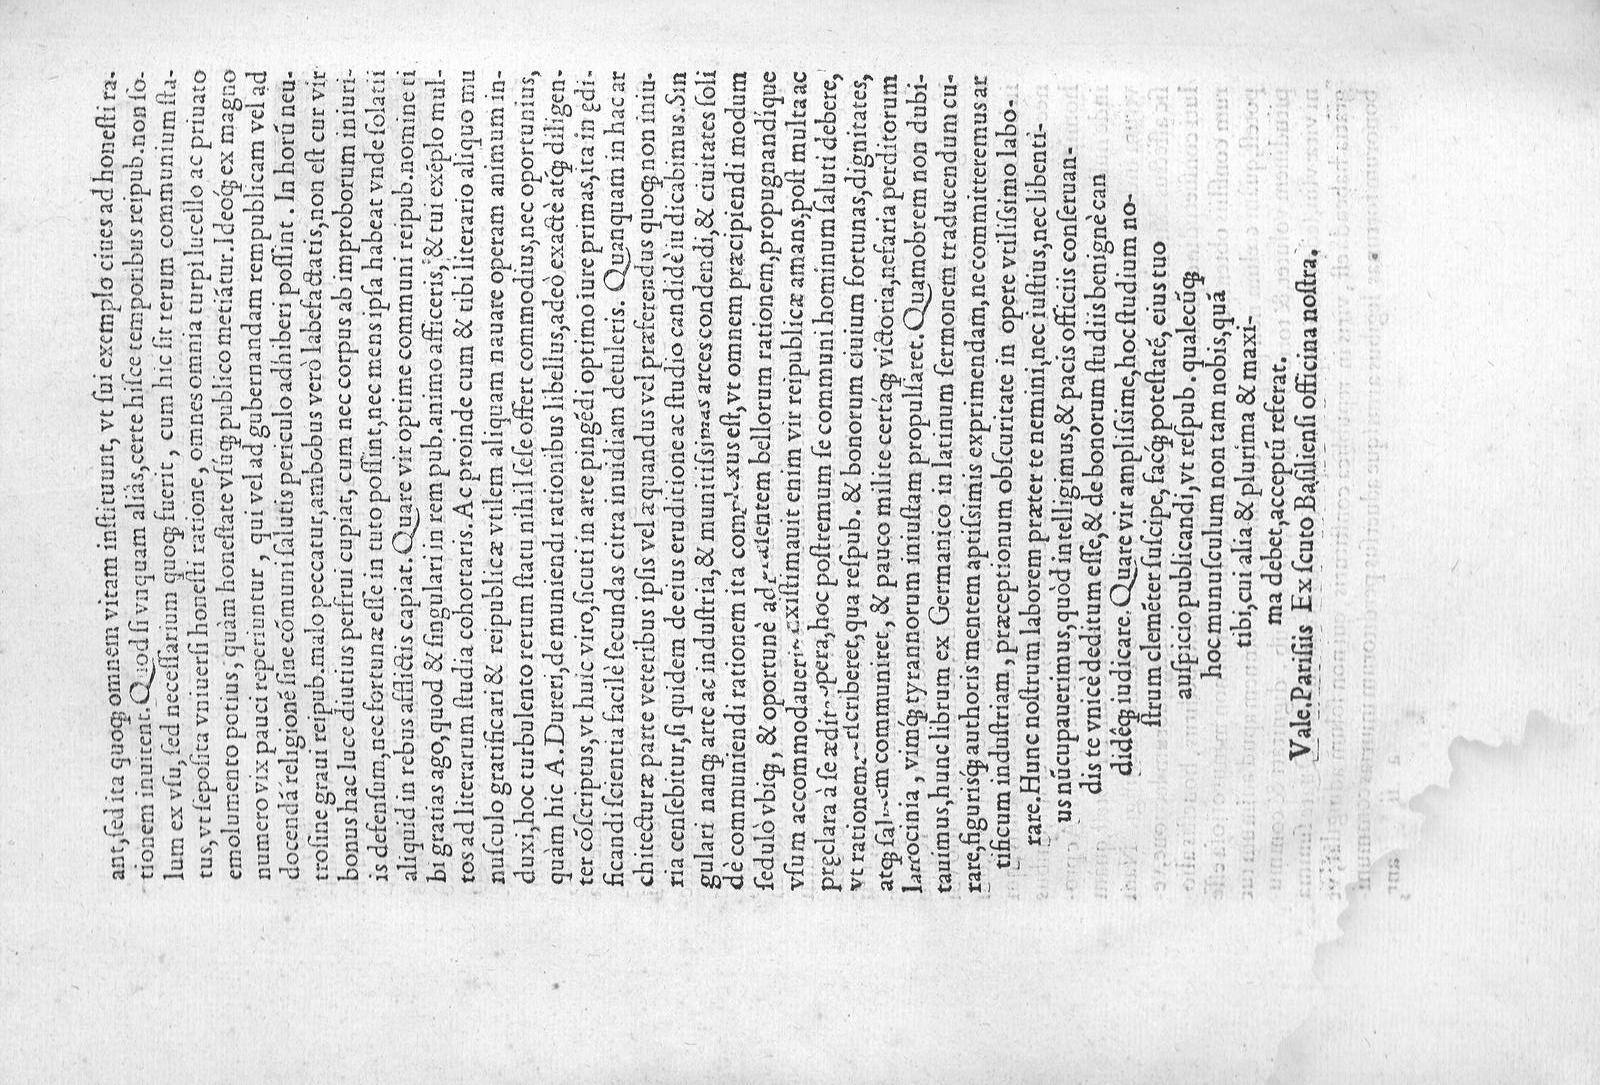 ant, ſed ita quoqꝫ omnem vitam inſtituunt, vt ſui exemplo ciues ad honeſti ra-
tionem inuitent. Quod ſi vnquam aliàs, certe hiſce temporibus reipub. non ſo-
lum ex vſu, ſed neceſſarium quoqꝫ fuerit, cum hic ſit rerum communium ſta-
tus, vt ſepoſita vniuerſi honeſti ratione, omnes omnia turpi lucello ac priuato
emolumento potius, quàm honeſtate vſúqꝫ publico metiátur. Ideoqꝫ ex magno
numero vix pauci reperiuntur, qui vel ad gubernandam rempublicam vel ad
docendá religioné ſine cómuni ſalutis periculo adhiberi poſſint. In horú neu-
tro ſine graui reipub. malo peccatur, ambobus verò labefactatis, non eſt cur vir
bonus hac luce diutius perfrui cupiat, cum nec corpus ab improborum iniuri-
is defenſum, nec fortunæ eſſe in tuto poſſint, nec mens ipſa habeat vnde ſolatii
aliquid in rebus afflictis capiat. Quare vir optime communi reipub. nomine ti
bi gratias ago, quod & ſingulari in rem pub. animo afficeris, & tui exéplo mul-
tos ad literarum ſtudia cohortaris. Ac proinde cum & tibi literario aliquo mu
nuſculo gratificari & reipublicæ vtilem aliquam nauare operam animum in-
duxi, hoc turbulento rerum ſtatu nihil ſeſe offert commodius, nec oportunius,
quàm hic A. Dureri, de muniendi rationibus libellus, adeò exactè atqꝫ diligen-
ter cóſcriptus, vt huic viro, ſicuti in arte pingédi optimo iure primas, ita in ędi-
ficandi ſcientia facilè ſecundas citra inuidiam detuleris. Quanquam in hac ar
chitecturæ parte veteribus ipſis vel æquandus vel præferendus quoqꝫ non iniu-
ria cenſebitur, ſi quidem de eius eruditione ac ſtudio candidè iudicabimus. Sin
gulari nanqꝫ arte ac induſtria, & munitiſsimas arces condendi, & ciuitates ſoli
dè communiendi rationem ita complexus eſt, vt omnem præcipiendi modum
ſedulò vbiqꝫ, & oportunè ad præſentem bellorum rationem, propugnandíque
vſum accommodauerit. Exiſtimauit enim vir reipublicæ amans, poſt multa ac
pręclara à ſe ædita opera, hoc poſtremum ſe communi hominum ſaluti debere,
vt rationem præſcriberet, qua reſpub. & bonorum ciuium fortunas, dignitates,
atqꝫ ſalutem communiret, & pauco milite certáqꝫ victoria, nefaria perditorum
latrocinia, vimqꝫ tyrannorum iniuſtam propulſaret. Quamobrem non dubi-
tauimus, hunc librum ex Germanico in latinum ſermonem traducendum cu-
rare, figurisqꝫ authoris mentem aptiſsimis exprimendam, ne committeremus ar
tificum induſtriam, præceptionum obſcuritate in opere vtiliſsimo labo-
rare. Hunc noſtrum laborem præter te nemini, nec iuſtius, nec libenti-
us núcupauerimus, quòd intelligimus, & pacis officiis conſeruan-
dis te vnicè deditum eſſe, & de bonorum ſtudiis benignè can
didéqꝫ iudicare. Quare vir ampliſsime, hoc ſtudium no-
ſtrum cleméter ſuſcipe, facqꝫ poteſtaté, eius tuo
auſpicio publicandi, vt reſpub. qualecúqꝫ
hoc munuſculum non tam nobis, quá
tibi, cui alia & plurima & maxi-
ma debet, acceptú referat.
Vale. Pariſiis Ex ſcuto Baſilienſi officina noſtra.